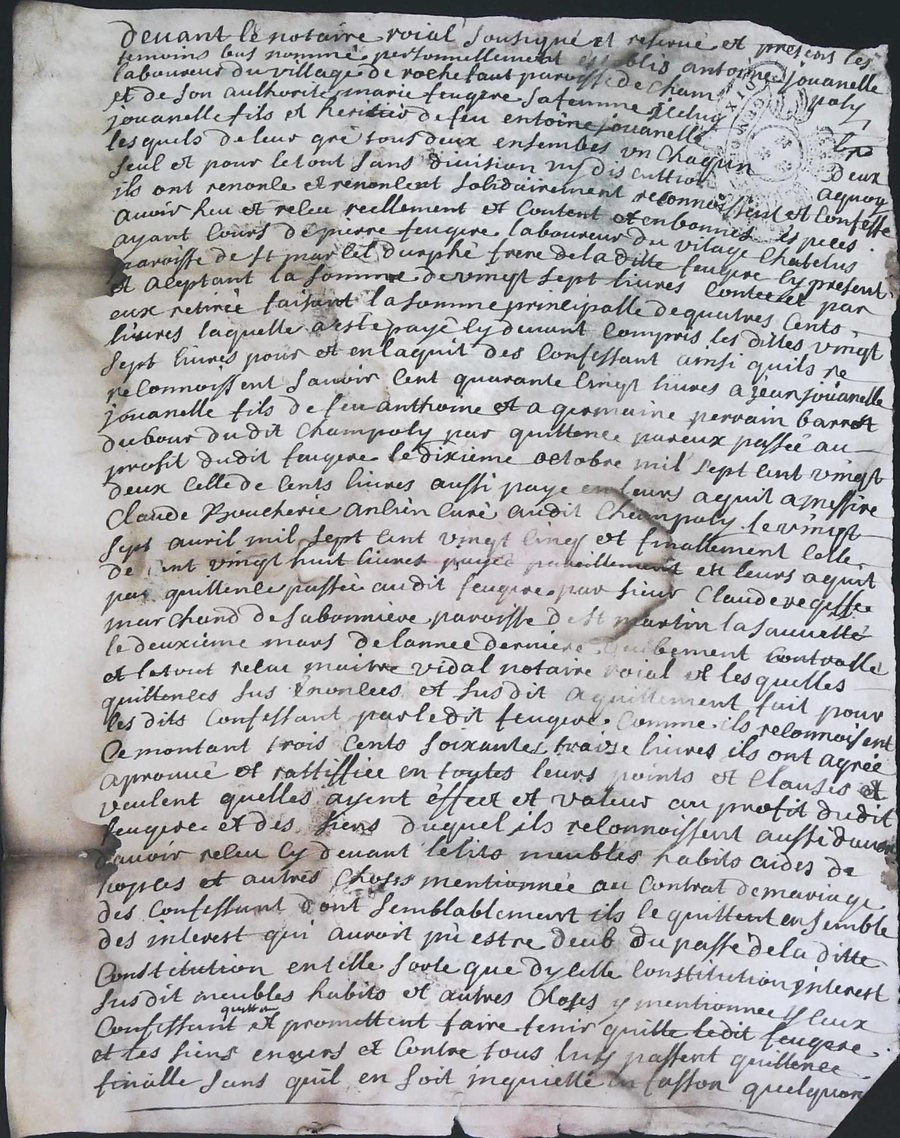 devant le notaire roial sousigné et reservé et presens les
temoins bas nommé personnellement establis antoine jouanelle
laboureur du village de rochefaut paroisse de Champoly
et de son authorité marie feugere sa femme iceluy
jouanelle fils et heritier de feu entoine jouanelle
lesquels de leur gré tous deux ensembes un chaqun deux
seul et pour le tout sans division ny discution aquoy
ils ont renonle et renonlent solidairement reconnoissent et confesse
avoir heu et releu reellement et content et en bonnes espeles
ayant lours de pierre feugere laboureur du vilage Chatelus
paroisse de st marlel durphé frere de la ditte feugere ly present
et aleptant la somme de vingt sept livres contee et par
eux retirée faisant la somme principalle de quatres Cents
livres laquelle a esté payé ly devant compris les dittes vingt
sept livres pour et en laquit des Confessant ainsi quils re
relonnoissent savoir lent quarante linqt livres a jean jouanelle
jouanelle fils de feu anthoine et a germaine perrain barret
du bour du dit Champoly par quittence par eux passée au
profit du dit feugere le dixieme octobre mil sept lent vingt
deux lelle de Cents livres aussi paye en leurs aquit a messire
Claude Boucherie anlien luré au dit Champoly le vingt
sept avril mil sept lent vingt linq et finallement lelle
de lent vingt huit livres payer pareillement en leurs aquit
par quittence passée au dit feugere par sieur Claude
marchand de sabonniere paroisse de st martin la sauveté
le deuxieme mars de lannee derniere Controllé
et le tout relu maitre vidal notaire roial et lesquelles
quittenles sus énonlees et susdit aquittement fait pour
les dits Confessant par le dit feugere Comme ils relonnoissent
Ce montant trois Cents soixante traize livres ils ont agrée
aprouvé et rattiffiee en toutes leurs points et Clauses et
veulent quelles ayent éffect et valeur au profit du dit
feugere et des siens duquel ils relonnoissent aussi
davoir releu ly devant lelits meubles habits aides de
noples et autres Choses mentionnée au Contrat de mariage
des Confessant dont semblablement ils le quittent ensemble
des interest qui auront pû estre deub du passé de la ditte
Constitution en telle sorte que dylelle Constitution interest
susdit meubles habits et autres Choses y mentionnee y leux
quittent
Confessant et promettent faire tenir quitte le dit feugere
et les siens envers et Contre tous luy passent quittence
finalle sans quil en soit inquietté en fasson quelquon